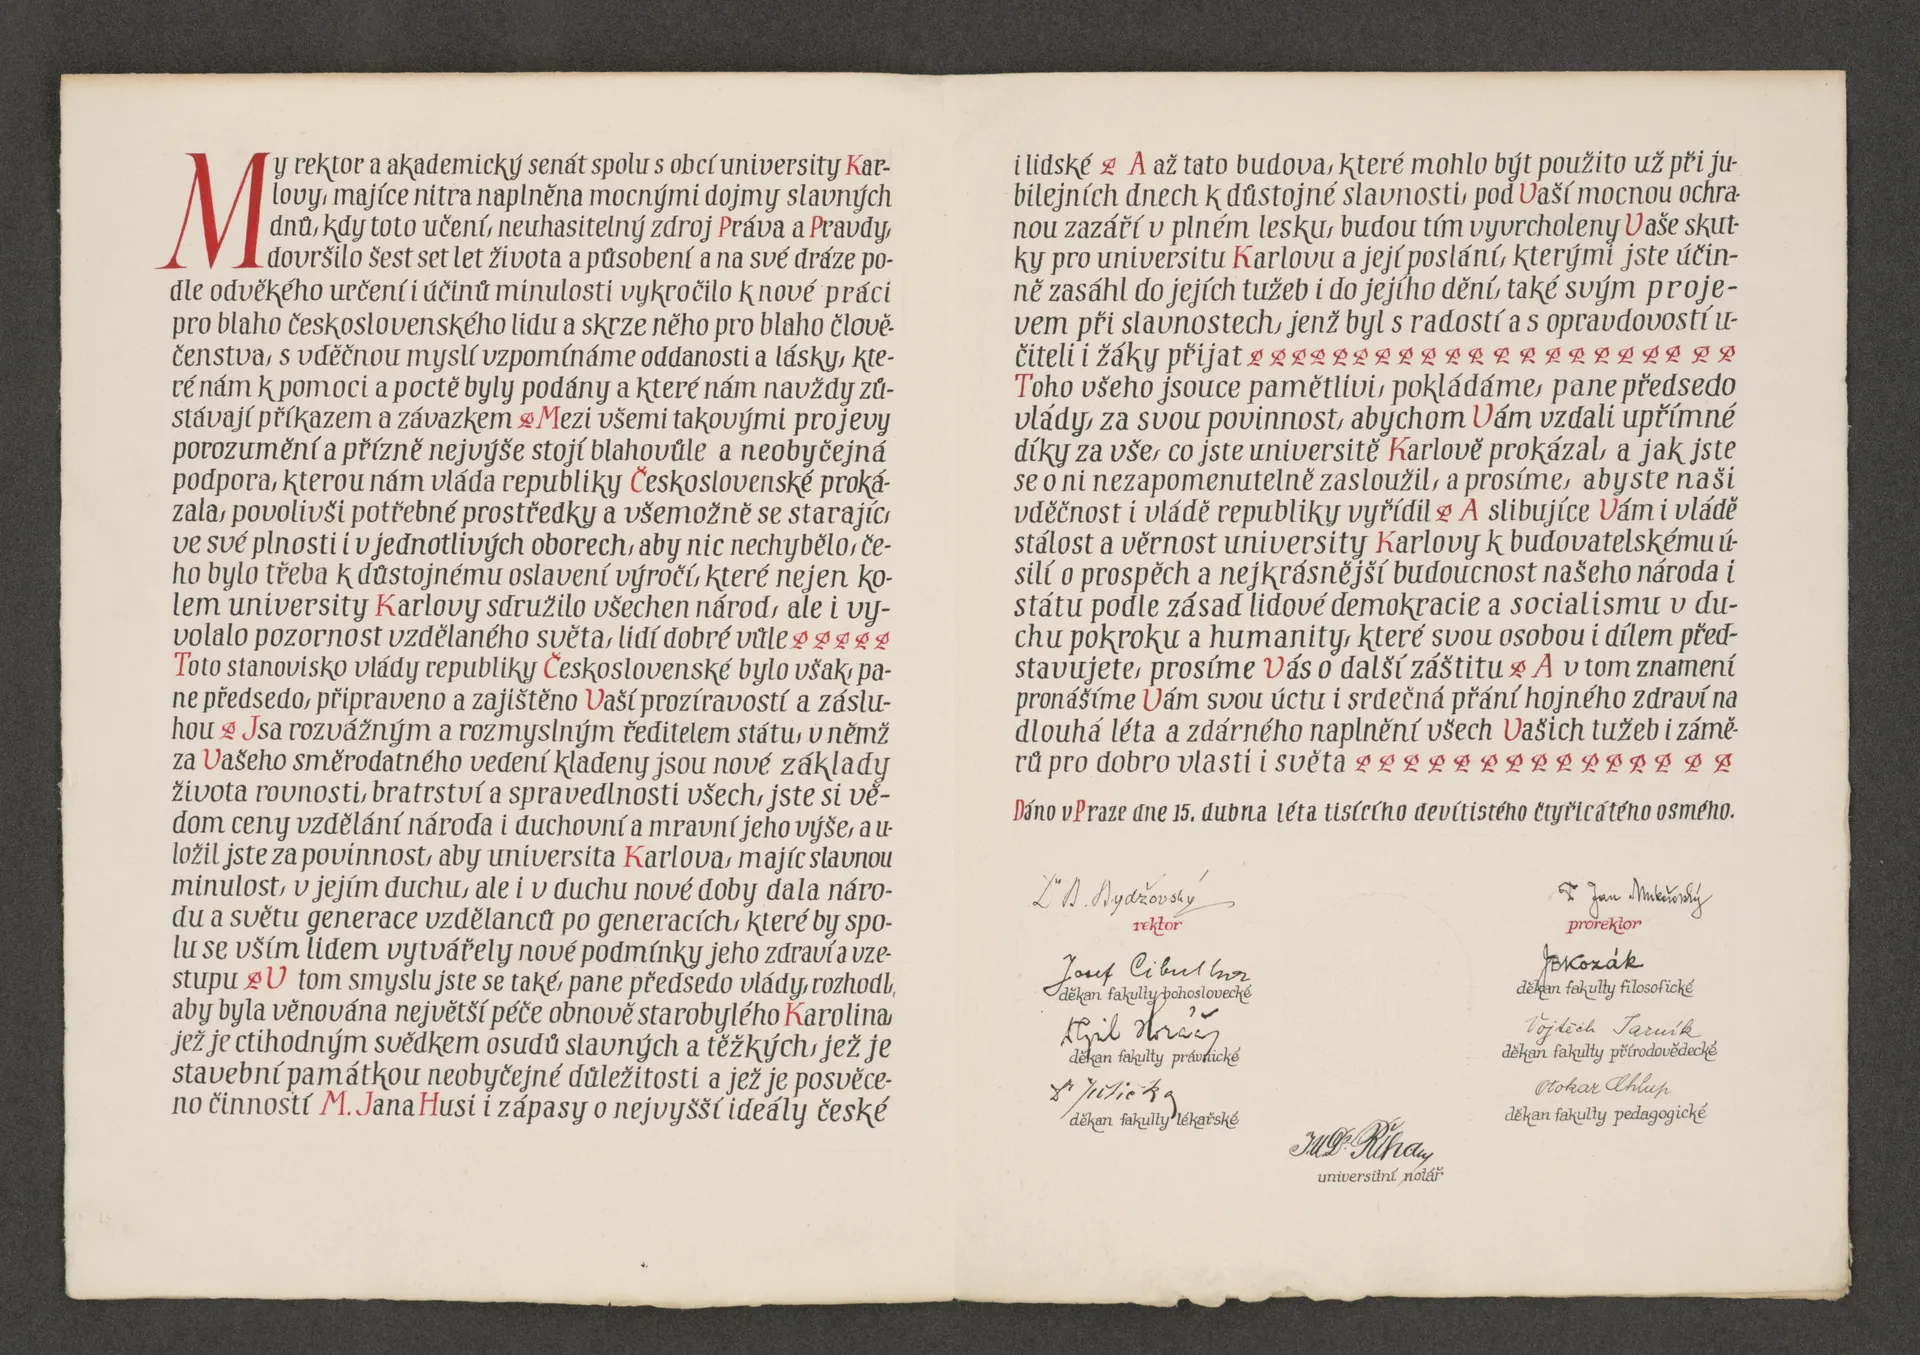 My rektor a akademický senát spolu s obcí university Kar-
lovy, majíce nitra naplněna mocnými dojmy slavných
dnů, kdy toto učení, neuhasitelný zdroj Práva a Pravdy,
dovršilo šest set let života a působení a na své dráze po-
dle odvěkého určení i účinů minulosti vykročilo k nové práci
pro blaho československého lidu a skrze něho pro blaho člově-
čenstva, s vděčnou myslí vzpomínáme oddanosti a lásky, kte-
ré nám k pomoci a poctě byly podány a které nám navždy zů-
stávají příkazem a závazkem Mezi všemi takovými projevy
porozumění a přízně nejvýše stojí blahovůle a neobyčejná
podpora, kterou nám vláda republiky Československé proká-
zala, povolivši potřebné prostředky a všemožně se starajíc,
ve své plnosti i v jednotlivých oborech, aby nic nechybělo, če-
ho bylo třeba k důstojnému oslavení výročí, které nejen ko-
lem university Karlovy sdružilo všechen národ, ale i vy-
volalo pozornost vzdělaného světa, lidí dobré vůle
Toto stanovisko vlády republiky Československé bylo však, pa-
ne předsedo, připraveno a zajištěno Vaší prozíravostí a záslu-
hou Jsa rozvážným a rozmyslným ředitelem státu, v němž
za Vašeho směrodatného vedení kladeny jsou nové základy
života rovnosti, bratrství a spravedlnosti všech, jste si vě-
dom ceny vzdělání národa i duchovní a mravní jeho výše, a u-
ložil jste za povinnost, aby universita Karlova, majíc slavnou
minulost, v jejím duchu, ale i v duchu nové doby dala náro-
du a světu generace vzdělanců po generacích, které by spo-
lu se vším lidem vytvářely nové podmínky jeho zdraví a vze-
stupu V tom smyslu jste se také, pane předsedo vlády, rozhodl,
aby byla věnována největší péče obnově starobylého Karolina,
jež je ctihodným svědkem osudů slavných a těžkých, jež je
stavební památkou neobyčejné důležitosti a jež je posvěce-
no činností M. Jana Husi i zápasy o nejvyšší ideály české
i lidské A až tato budova, které mohlo být použito už při ju-
bilejních dnech k důstojné slavnosti, pod Vaší mocnou ochra-
nou zazáří v plném lesku, budou tím vyvrcholeny Vaše skut-
ky pro universitu Karlovu a její poslání, kterými jste účin-
ně zasáhl do jejích tužeb i do jejího dění, také svým proje-
vem při slavnostech, jenž byl s radostí a s opravdovostí u-
čiteli i žáky přijat
Toho všeho jsouce pamětlivi, pokládáme, pane předsedo
vlády, za svou povinnost, abychom Vám vzdali upřímné
díky za vše, co jste universitě Karlově prokázal, a jak jste
se o ni nezapomenutelně zasloužil, a prosíme, abyste naši
vděčnost i vládě republiky vyřídil A slibujíce Vám i vládě
stálost a věrnost university Karlovy k budovatelskému ú-
silí o prospěch a nejkrásnější budoucnost našeho národa i
státu podle zásad lidové demokracie a socialismu v du-
chu pokroku a humanity, které svou osobou i dílem před-
stavujete, prosíme Vás o další záštitu A v tom znamení
pronášíme Vám svou úctu i srdečná přání hojného zdraví na
dlouhá léta a zdárného naplnění všech Vašich tužeb i zámě-
rů pro dobro vlasti i světa
Dáno v Praze dne 15. dubna léta tisícího devítistého čtyřicátého osmého.
Dr B. Bydžovský
rektor
Dr Jan Mukařovský
prorektor
Josef Cibulka
děkan fakulty bohoslovecké
JBKozák
děkan fakulty filosofické
děkan fakulty právnické
Vojtěch Jarník
děkan fakulty přírodovědecké
děkan fakulty lékařské
Otokar Chlup
děkan fakulty pedagogické
JUDr Říha
universitní notář